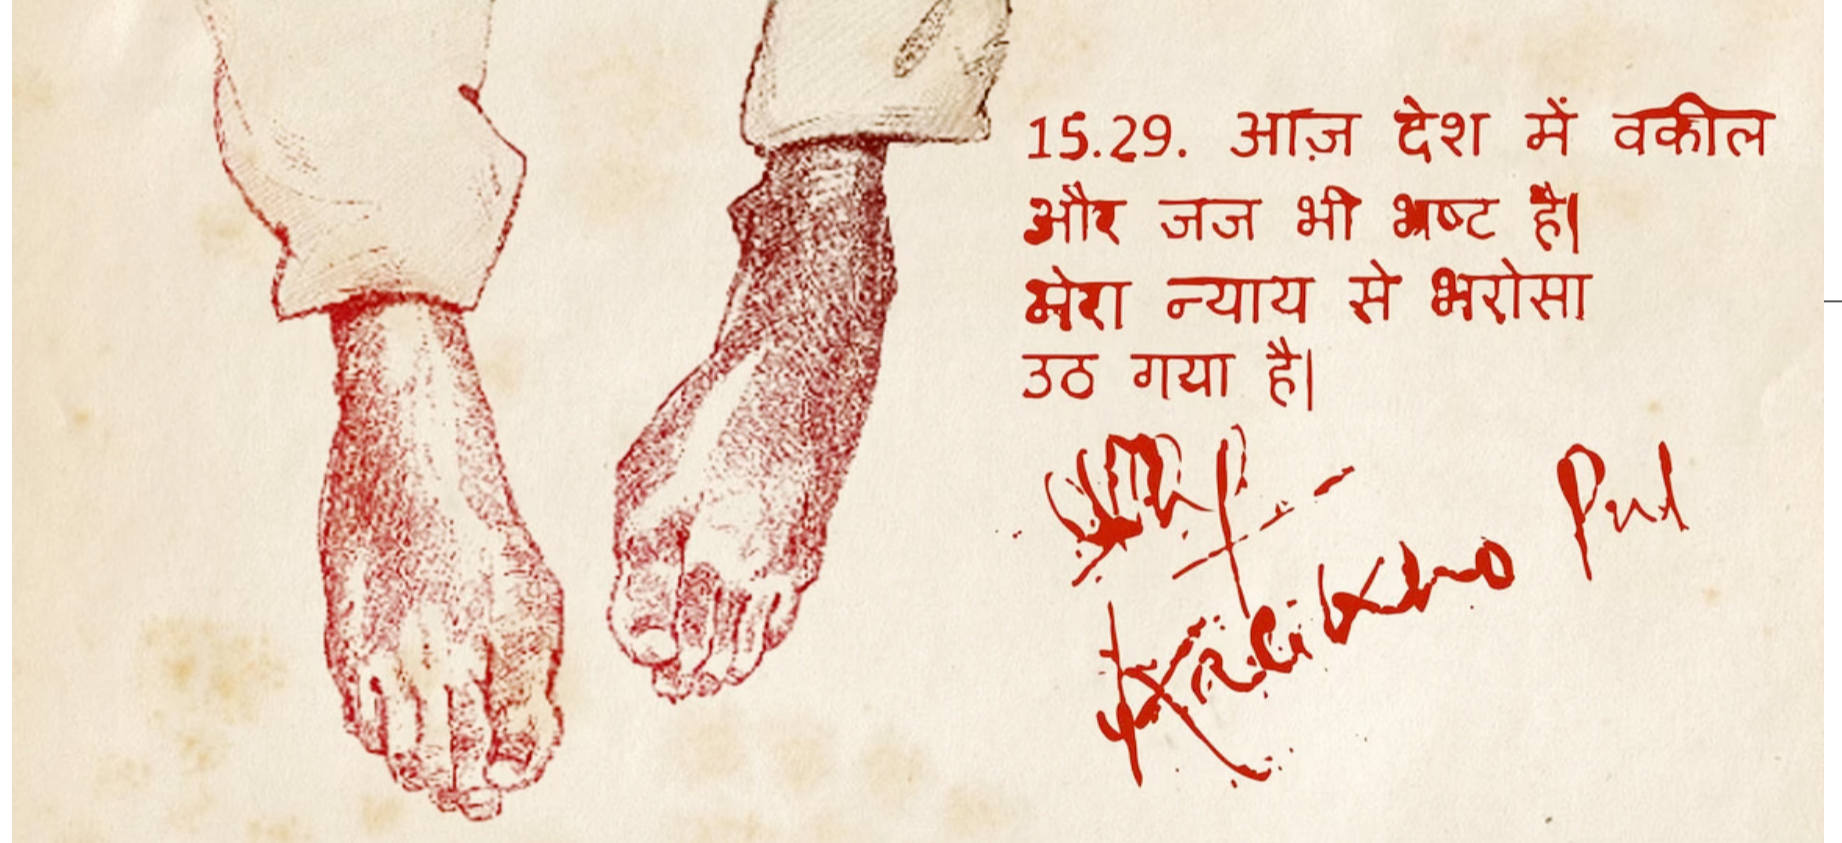 15.29. आज़ देश में वकील
और जज भी भ्रष्ट है|
मेरा न्याय से भरोसा
उठ गया है|
Pul